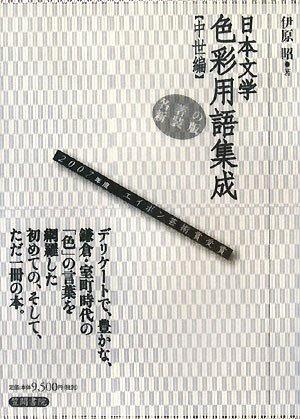 伊原 昭●著
日本文学
色彩用語集成
【中世編】
名著の
新装版
2007年度 エイボン芸術賞受賞
デリケートで、豊かな、
鎌倉・室町時代の
「色」の言葉を
網羅した
初めての、そして、
ただ一冊の本。
笠間書院
定価:本体9,500円(税別)